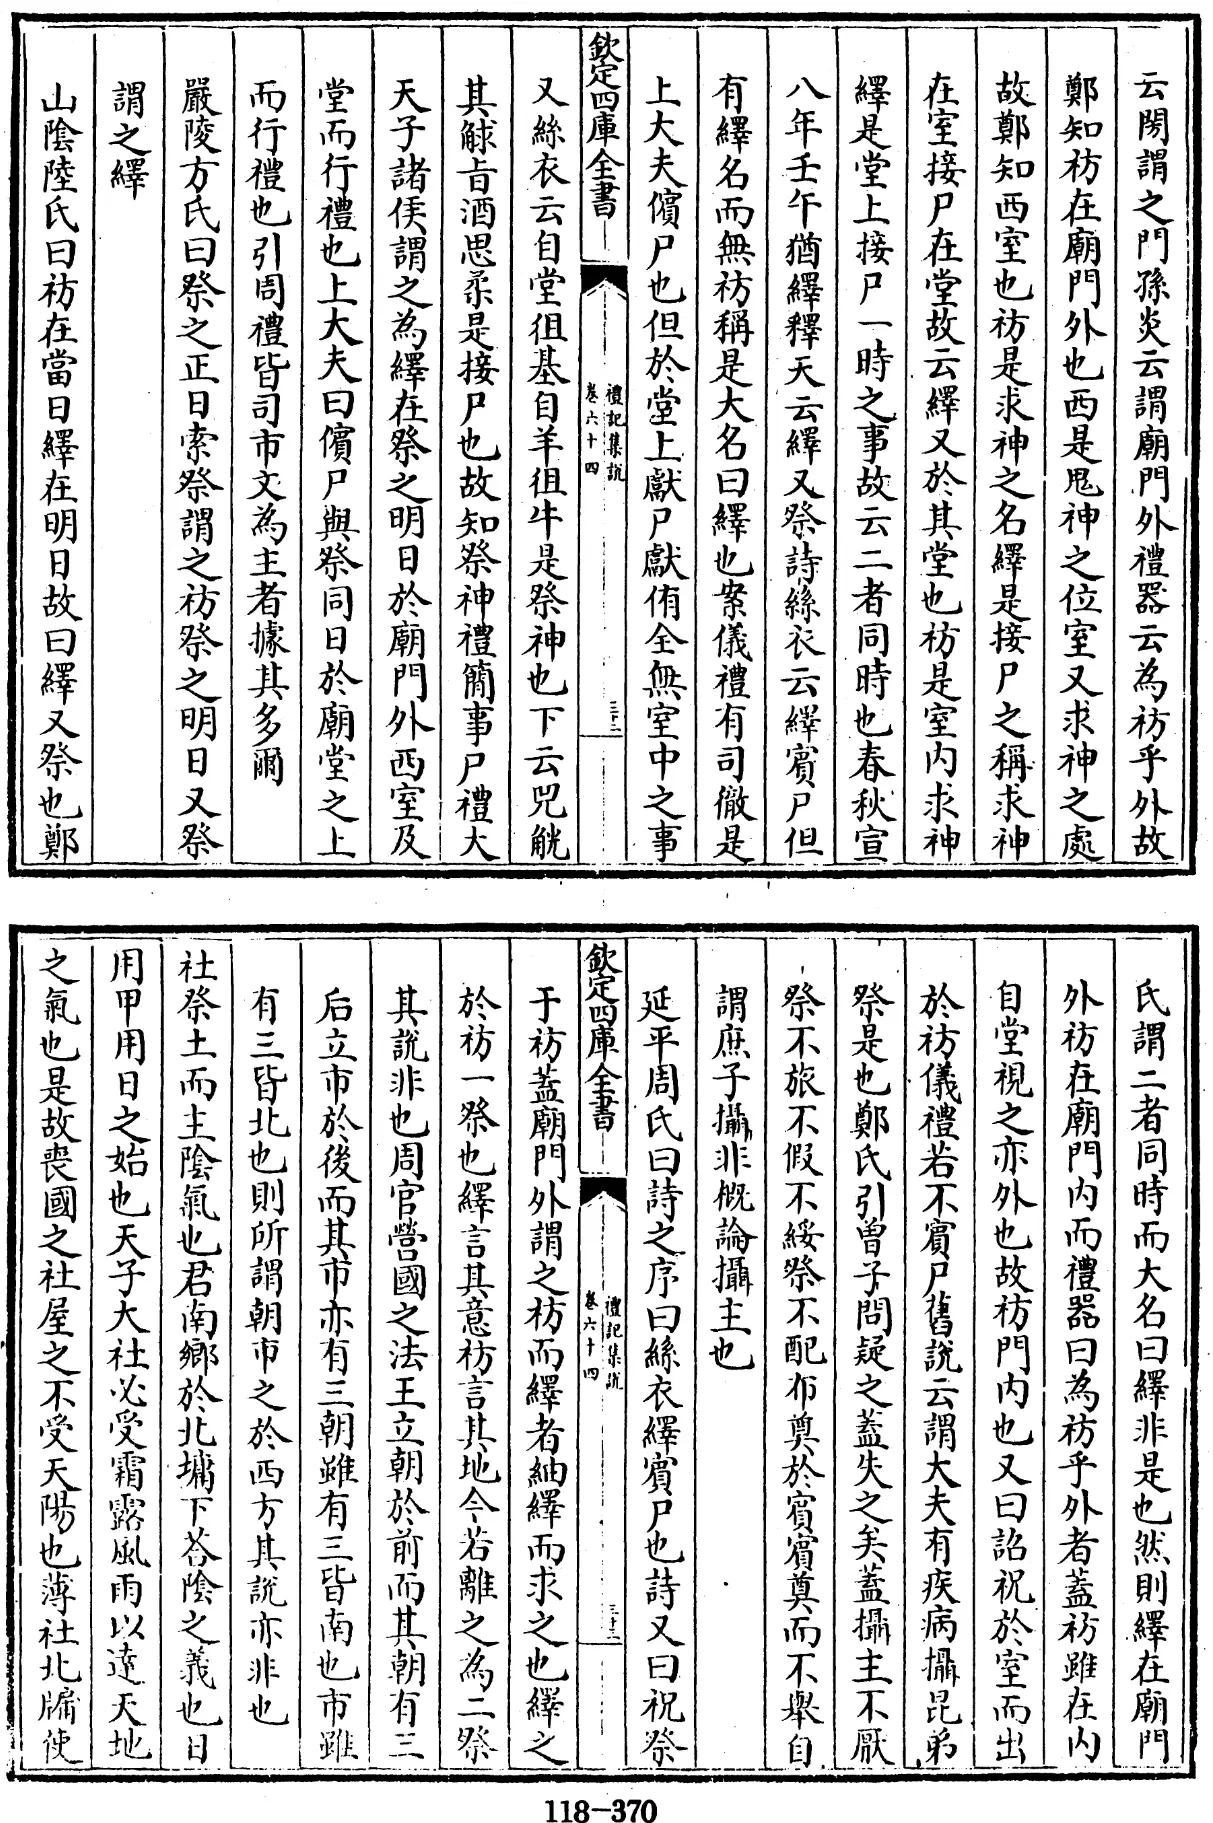 云閍謂之門孫炎云謂廟門外禮器云為祊乎外故
鄭知祊在廟門外也西是鬼神之位室又求神之處
故鄭知西室也祊是求神之名繹是接尸之稱求神
在室接尸在堂故云繹又於其堂也祊是室内求神
繹是堂上接尸一時之事故云二者同時也春秋宣
八年壬午猶繹釋天云繹又祭詩絲衣云繹賓尸但
有繹名而無祊稱是大名曰繹也案儀禮有司徹是
上大夫儐尸也但於堂上獻尸獻侑全無室中之事
欽定四庫全書
禮記集說
卷六十四
三十二
又絲衣云自堂徂基自羊徂牛是祭神也下云兕觥
其觩旨酒思柔是接尸也故知祭神禮簡事尸禮大
天子諸侯謂之為繹在祭之明日於廟門外西室及
堂而行禮也上大夫曰儐尸與祭同日於廟堂之上
而行禮也引周禮皆司市文為主者據其多爾
嚴陵方氏曰祭之正日索祭謂之祊祭之明日又祭
謂之繹
山陰陸氏曰祊在當日繹在明日故曰繹又祭也鄭
氏謂二者同時而大名曰繹非是也然則繹在廟門
外祊在廟門内而禮器曰為祊乎外者蓋祊雖在内
自堂視之亦外也故祊門内也又曰詔祝於室而出
於祊儀禮若不賓尸舊說云謂大夫有疾病攝昆弟
祭是也鄭氏引曾子問疑之蓋失之矣蓋攝主不厭
祭不旅不假不綏祭不配布奠於賓賓奠而不舉自
謂庶子攝非概論攝主也
延平周氏曰詩之序曰絲衣繹賓尸也詩又曰祝祭
欽定四庫全書
禮記集說
卷六十四
三十三
于祊蓋廟門外謂之祊而繹者紬繹而求之也繹之
於祊一祭也繹言其意祊言其地今若離之為二祭
其說非也周官營國之法王立朝於前而其朝有三
后立市於後而其市亦有三朝雖有三皆南也市雖
有三皆北也則所謂朝市之於西方其說亦非也
社祭土而主陰氣也君南鄉於北墉下荅陰之義也日
用甲用日之始也天子大社必受霜露風雨以達天地
之氣也是故喪國之社屋之不受天陽也薄社北牖使
118-370